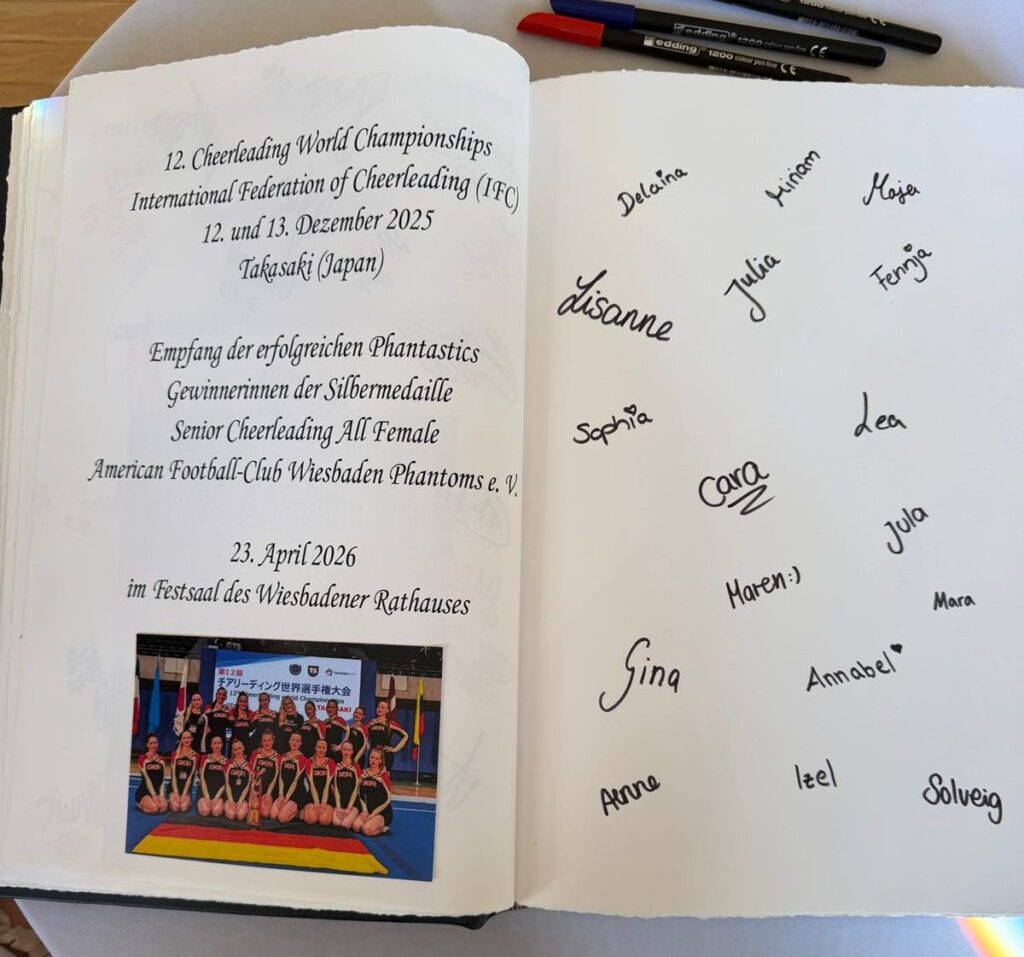 12. Cheerleading World Championships
International Federation of Cheerleading (IFC)
12. und 13. Dezember 2025
Takasaki (Japan)
Empfang der erfolgreichen Phantastics
Gewinnerinnen der Silbermedaille
Senior Cheerleading All Female
American Football-Club Wiesbaden Phantoms e. V.
23. April 2026
im Festsaal des Wiesbadener Rathauses
第12回
チアリーディング世界選手権大会
12th Cheerleading World Championships
edding 1200 colour pen fine CE
edding 1200 colour pen fine CE
1200 colour pen fine CE
Delaina
Miriam
Maja
Lisanne
Julia
Fennja
Sophia
Lea
Cara
Jula
Maren:)
Mara
Gina
Annabel
Aenne
Izel
Solveig